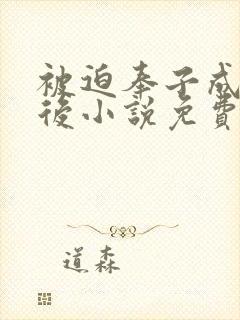 被迫奉子成
後小說免費
道森